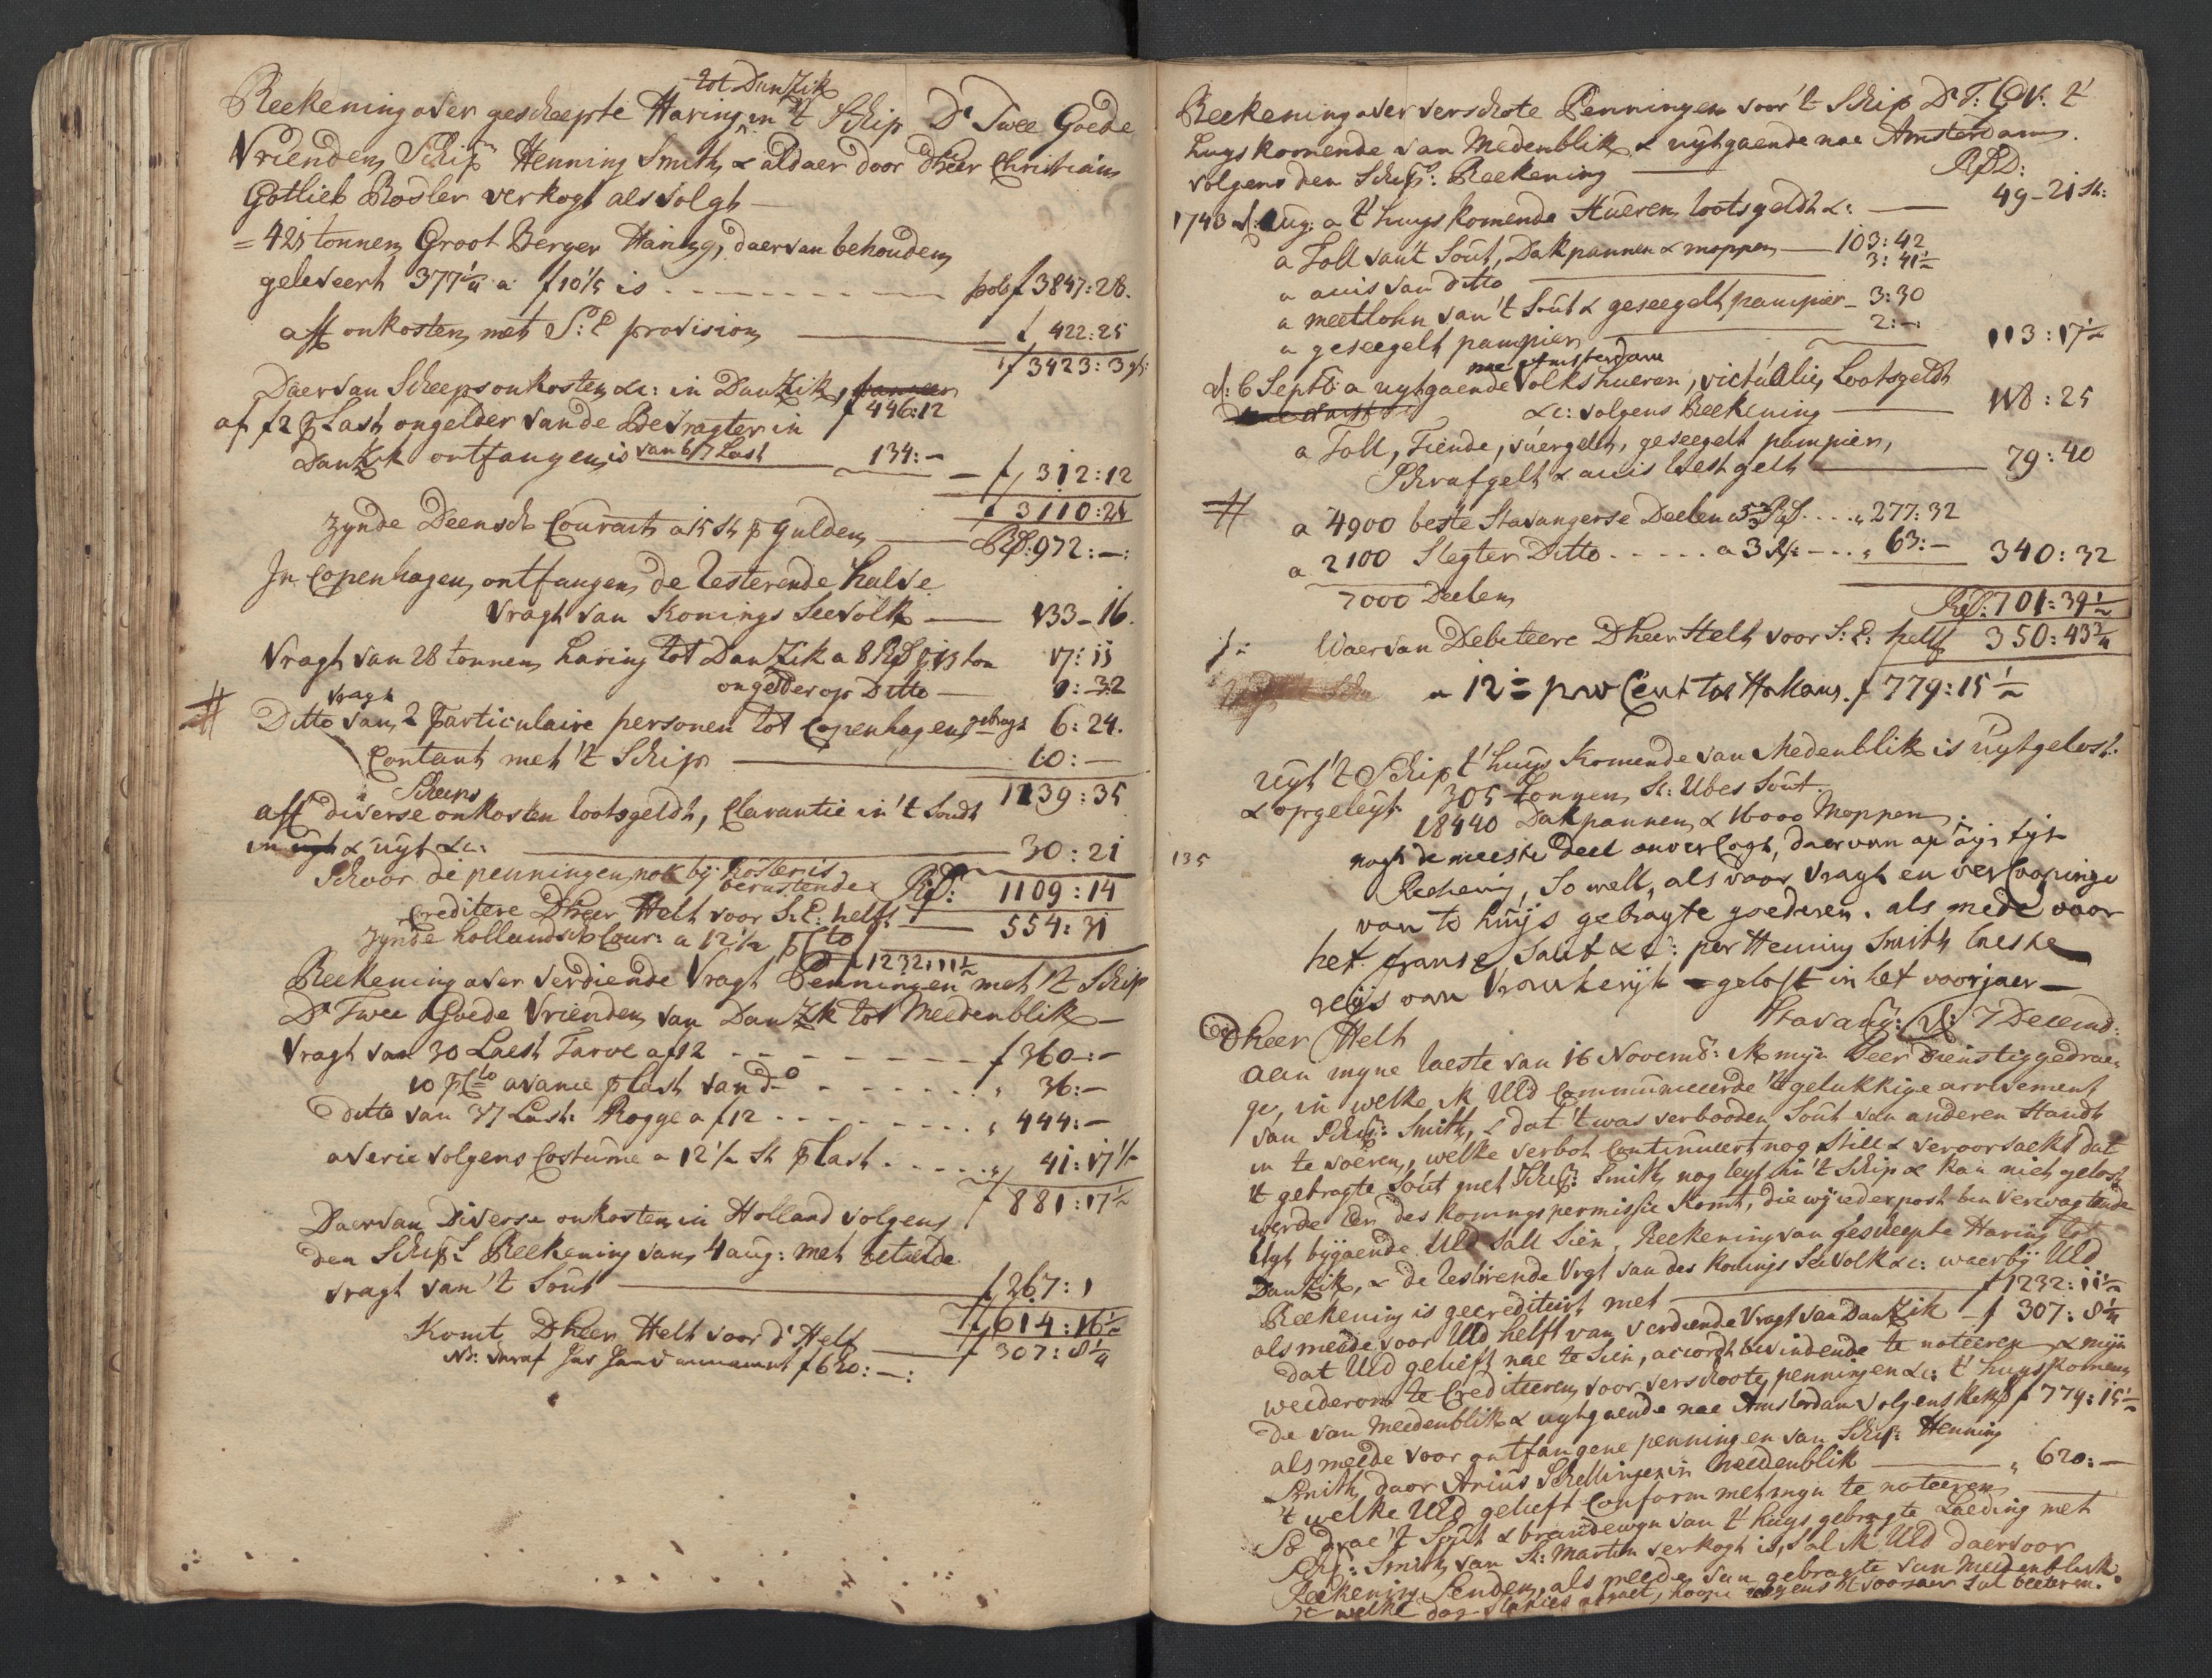 tot Dantzik
Reekening over gescheepte Haring in 't Schip D' Twee Goede
Vrienden, Schipr Henning Smith, & aldaer door Dheer Christiaen
Gotlieb Rosler verkogt als volgt —
= 425 tonnen Groot Berger Haring, daervan behouden
geleevert 377½ a f 10⅕ is - - - - - — pols f 3847:28.
aff onkosten met S: E provision — f 422:25
f 3423:3 gl:
Daer van Scheeps onkosten &c: in Dantzik,
f 446:12
af f 2 p Last ongelder van de Bevragter in
Dantzik ontfangen, is van 67 Last — 134:—
— f 312:12
f 3110:21
zynde Deensch Courant a 15 sh p gulden — Rd: 972:—:
In Copenhagen ontfangen de resterende halve
vragt van Konings Seevolk — 133–16.
Vragt van 28 tonnen haring tot Dantzik a 8 Rd p 13 ton 17:11
ongelder op Ditto — 0:32
vragt
# Ditto van 2 Particulaire personen tot Copenhagen gebragt 6:24.
Contant met 't Schip — 10:—
1139:35
Scheeps
aff diverse onkosten lootsgeldt, Clarantie in 't Sondt
in & uyt &c: — 30:21
Schoor de penningen nok bij Rosler is
berustende Rd: 1109:14
Crediteere Dheer Helt voor S: E: helft — 554:31
zynde hollandsch Cour: a 12½ p Cto f 1232:11½
Reekening over verdiende Vragt Penningen met 't Schip
D' Twee Goede Vrienden van Dantzik tot Meedenblik —
Vragt van 30 Laest Tarve a f 12 - - - - - f 360:—
10 p Cto avance p last van do - - - - - „ 36:—
Ditto van 37 Last: Rogge a f 12 - - - - - „ 444:—
averie volgens Costume a 12½ st p last - - - - „ 41:17½
f 881:17½
Daer van Diverse onkosten in Holland volgens
den Schiprs Reekening van 4 aug: met betaelde
vragt van 't Sout — f 267:1
f 614:16½
Komt Dheer Helt voor d' Helft — f 307:8¼
f 620:—:
Reekening over verschote Penningen voor 't Schip D' T: G V: t'
huys komende van Medenblik & uytgaende nae Amsterdam.
volgens den Schiprs: Reekening — RdD:
1743 d: Aug: a t' huys komende Hueren, lootsgeldt &c: — 49–21 sh:
a Toll van't Sout, Dakpannen & moppen — 103:42
a accis van ditto — 3:41½
a meetlohn van 't Sout & geseegelt pampier — 3:30
a geseegelt pampier — 2:—:
113:17½
nae Amsterdam
d: 6 Septb: a uytgaende volkshueren, victualie, Lootsgeldt
&c: volgens Reekening — 118:25
a Toll, Tiende, geseegelt pampier,
Schrafgelt & accis — 79:40
# a 4900 beste Stavangerse Deelen a 5⅔ Rd . . . „ 277:32
a 2100 Slegter Ditto . . . . . a 3 Rd — . . „ 63:— 340:32
7000 Deelen
Rd: 701:39½
Waer van Debeteere Dheer Helt voor S: E: helft 350:43¾
a 12½ pro Cent tot Hollans. f 779:15½
Uyt 't Schip t' huys Komende van Medenblik is uytgelost
& opgeleyt 305 tonnen St: Ubes Sout.
18440 Dakpannen & 16000 Moppen.
135 nogt de meeste deel onverkogt, daer van op sijn tijt
Reekening, so well, als voor vragt en verkoopinge
van te huijs gebragte goederen, als mede voor
het franse Sout & C: per Henning Smith laeste
reijs van Vrankerijk gelost in het voorjaer —
Stavang: d: 7 Decemb:
Dheer Helt
Aen myne laeste van 16 Novemb: Ik myn seer dienstig gedrae-
ge, in welke ik UEd Communiceerde 't gelukkige arrivement
van Schipr: Smith, & dat 't was verbooden Sout van anderen Standt
in te voeren, welke verbot Continueert nog still & veroorsaekt dat
't gebragte Sout met Schipr: Smith nog leyt in 't Schip & kan niet gelost
werde eer des Konings permissie Komt, die wij ieder post ben verwagtende
Uyt bijgaende UEd sall sien, Reekening van gescheepte Haring tot
Dantzik, & de resterende Vragt van des Konings Seevolk &c: waer bij UEd
Reekening is gecrediteert met — f 1232:11½
als meede voor UEd helft van verdiende Vragt van Dantzik — f 307:8¼
dat UEd gelieft nae te sien, accordt bevindende te noteeren & mijn
weederom te Crediteeren voor verschoote penningen &c: t' huys komen-
de van Meedenblik & uytgaende nae Amsterdam volgens Rek: f 779:15½
als meede voor ontfangene penningen van Schipr: Henning
Smith, door Arius Schellinger in Meedenblik — „ 620:—
't welke UEd gelieft Conform met myn te noteeren —
So drae 't Sout & brandewyn van t' huys gebragte Laeding met
Schipr: Smith van St: Martin verkogt is, sal ik UEd daer voor
Reekening senden, als meede van gebragte van Meedenblik.
't welke dog